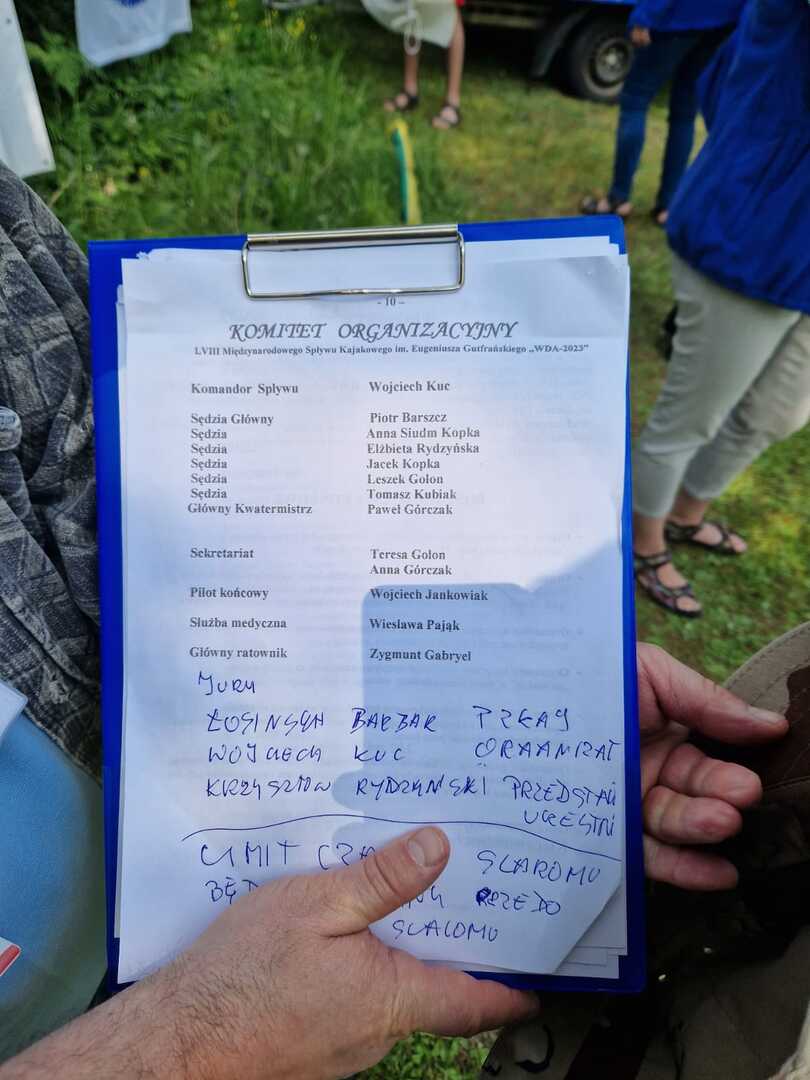 - 10 -
KOMITET ORGANIZACYJNY
LVIII Międzynarodowego Spływu Kajakowego im. Eugeniusza Gutfrańskiego „WDA-2023”
Komandor Spływu Wojciech Kuc
Sędzia Główny Piotr Barszcz
Sędzia Anna Siudm Kopka
Sędzia Elżbieta Rydzyńska
Sędzia Jacek Kopka
Sędzia Leszek Golon
Sędzia Tomasz Kubiak
Główny Kwatermistrz Paweł Górczak
Sekretariat Teresa Golon
Anna Górczak
Pilot końcowy Wojciech Jankowiak
Służba medyczna Wiesława Pająk
Główny ratownik Zygmunt Gabryel
JURY
BARBAR
WOJCIECH KUC
KRZYSZTOW RYDZYŃSKI PRZEDSTAW
UCESTNI
LIMIT
SLALOMU